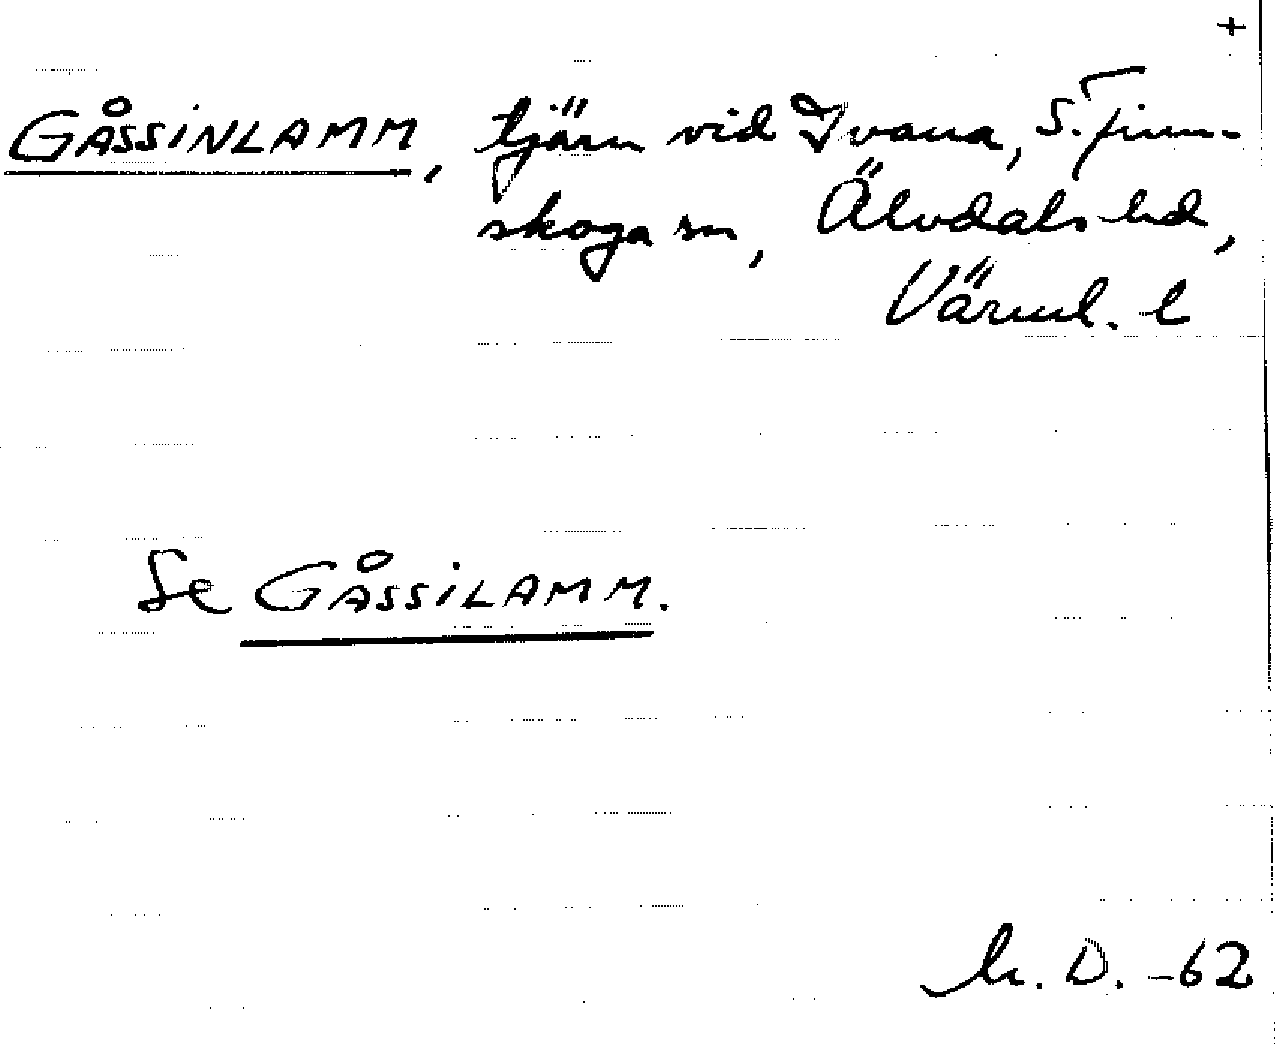 +
GÅSSINLAMM, tjärn vid Ivana, S. Finn-
skoga sn, Älvdals hd,
Värml. l
Se GÅSSILAMM.
D. -62